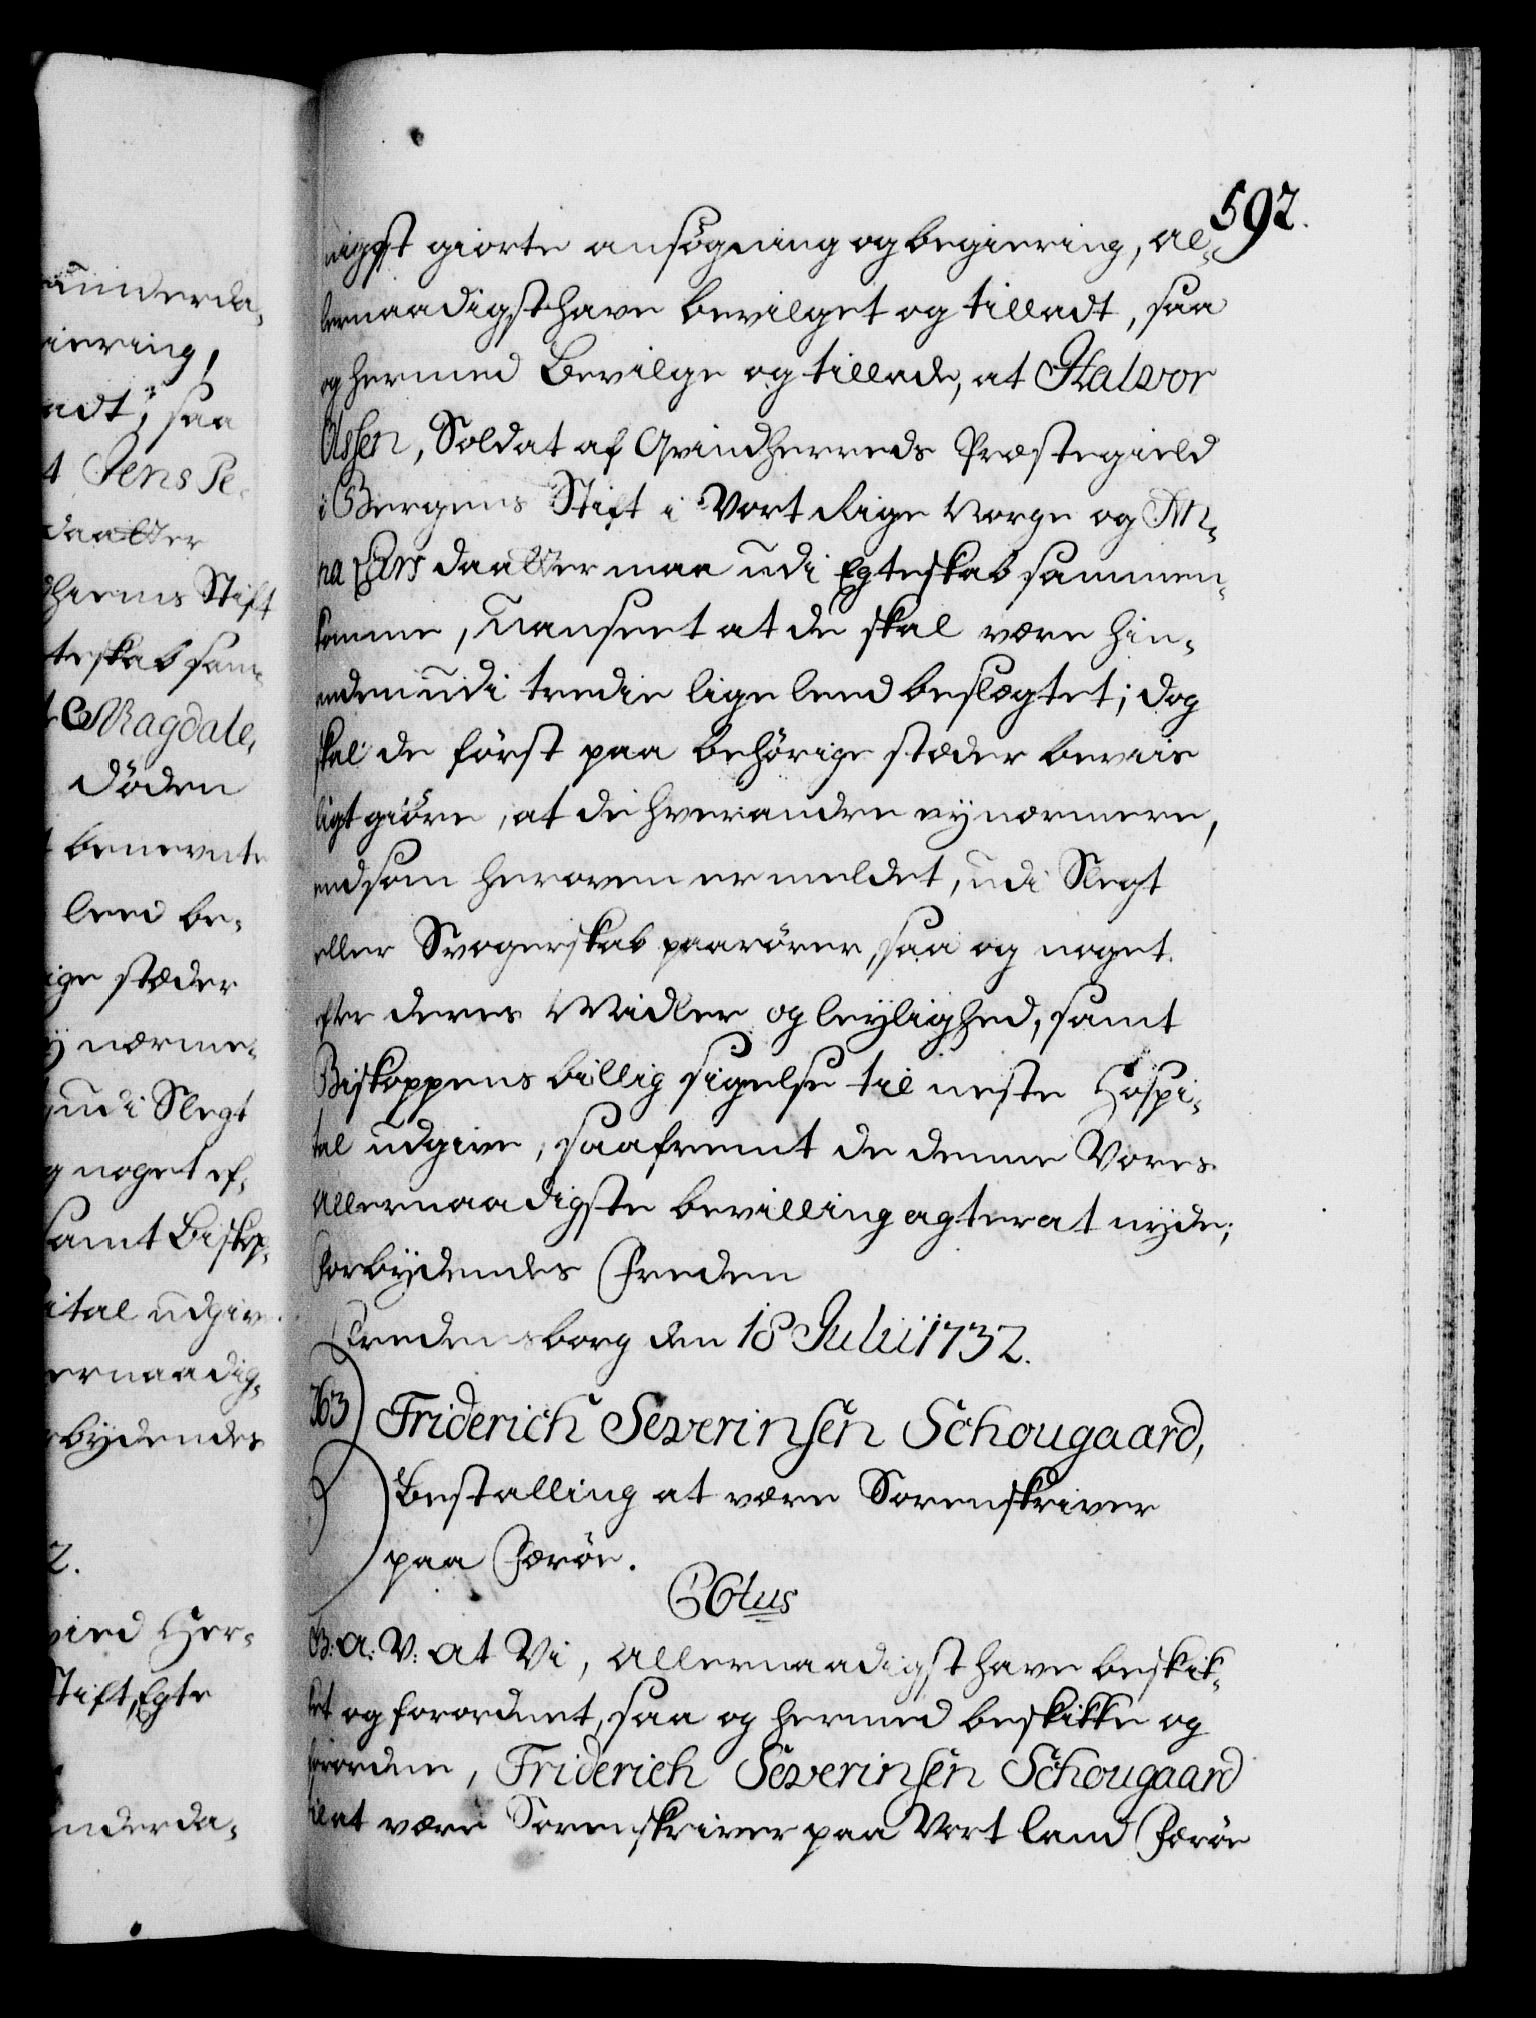 592.
nigst giorte ansögning og begiering, al-
lernaadigst have bevilget og tilladt, saa
og hermed bevilge og tillade, at Halvor
Olssen, Soldat af Qvindherreds Præstegield
i Bergens Stift i Vort Rige Norge og An-
na Lars daatter maa udi Egteskab sammen-
komme, uanseet at de skal være hin-
anden udi tredie lige leed beslægtet; dog
skal de först paa behörige stæder beviis
ligt giöre, at de hverandre ey nærmere,
end som heroven er meldet, udi Slegt
eller Svogerskab paarörer, saa og noget
efter deres Midler og leylighed, samt
Biskoppens billig sigelse til neste Hospi-
tal udgive, saafremt de denne Vores
Allernaadigste bevilling agter at nyde;
Forbydendes Freden
Fredensborg den 18 Julii 1732.
363) Friderich Severinsen Schougaard,
Bestalling at være Sorenskriver
paa Færöe.
C6tus
G: A: V: at Vi, Allernaadigst have beskik-
ket og forordnet, saa og hermed beskikke og
forordne, Friderich Severinsen Schougaard
til at være Sorenskriver paa Vort land Færöe
underda-
iering,
adt, saa
t Jens Pe-
daatter
dhiems Stift
teskab sam-
t Magdale-
döden
t benevnte
leed be-
ige stæder
y nærme-
udi Slegt
g noget ef-
samt Biskop-
ital udgive
ernaadig-
rbydendes
2.
vied Her-
Stift, Egte
underda-